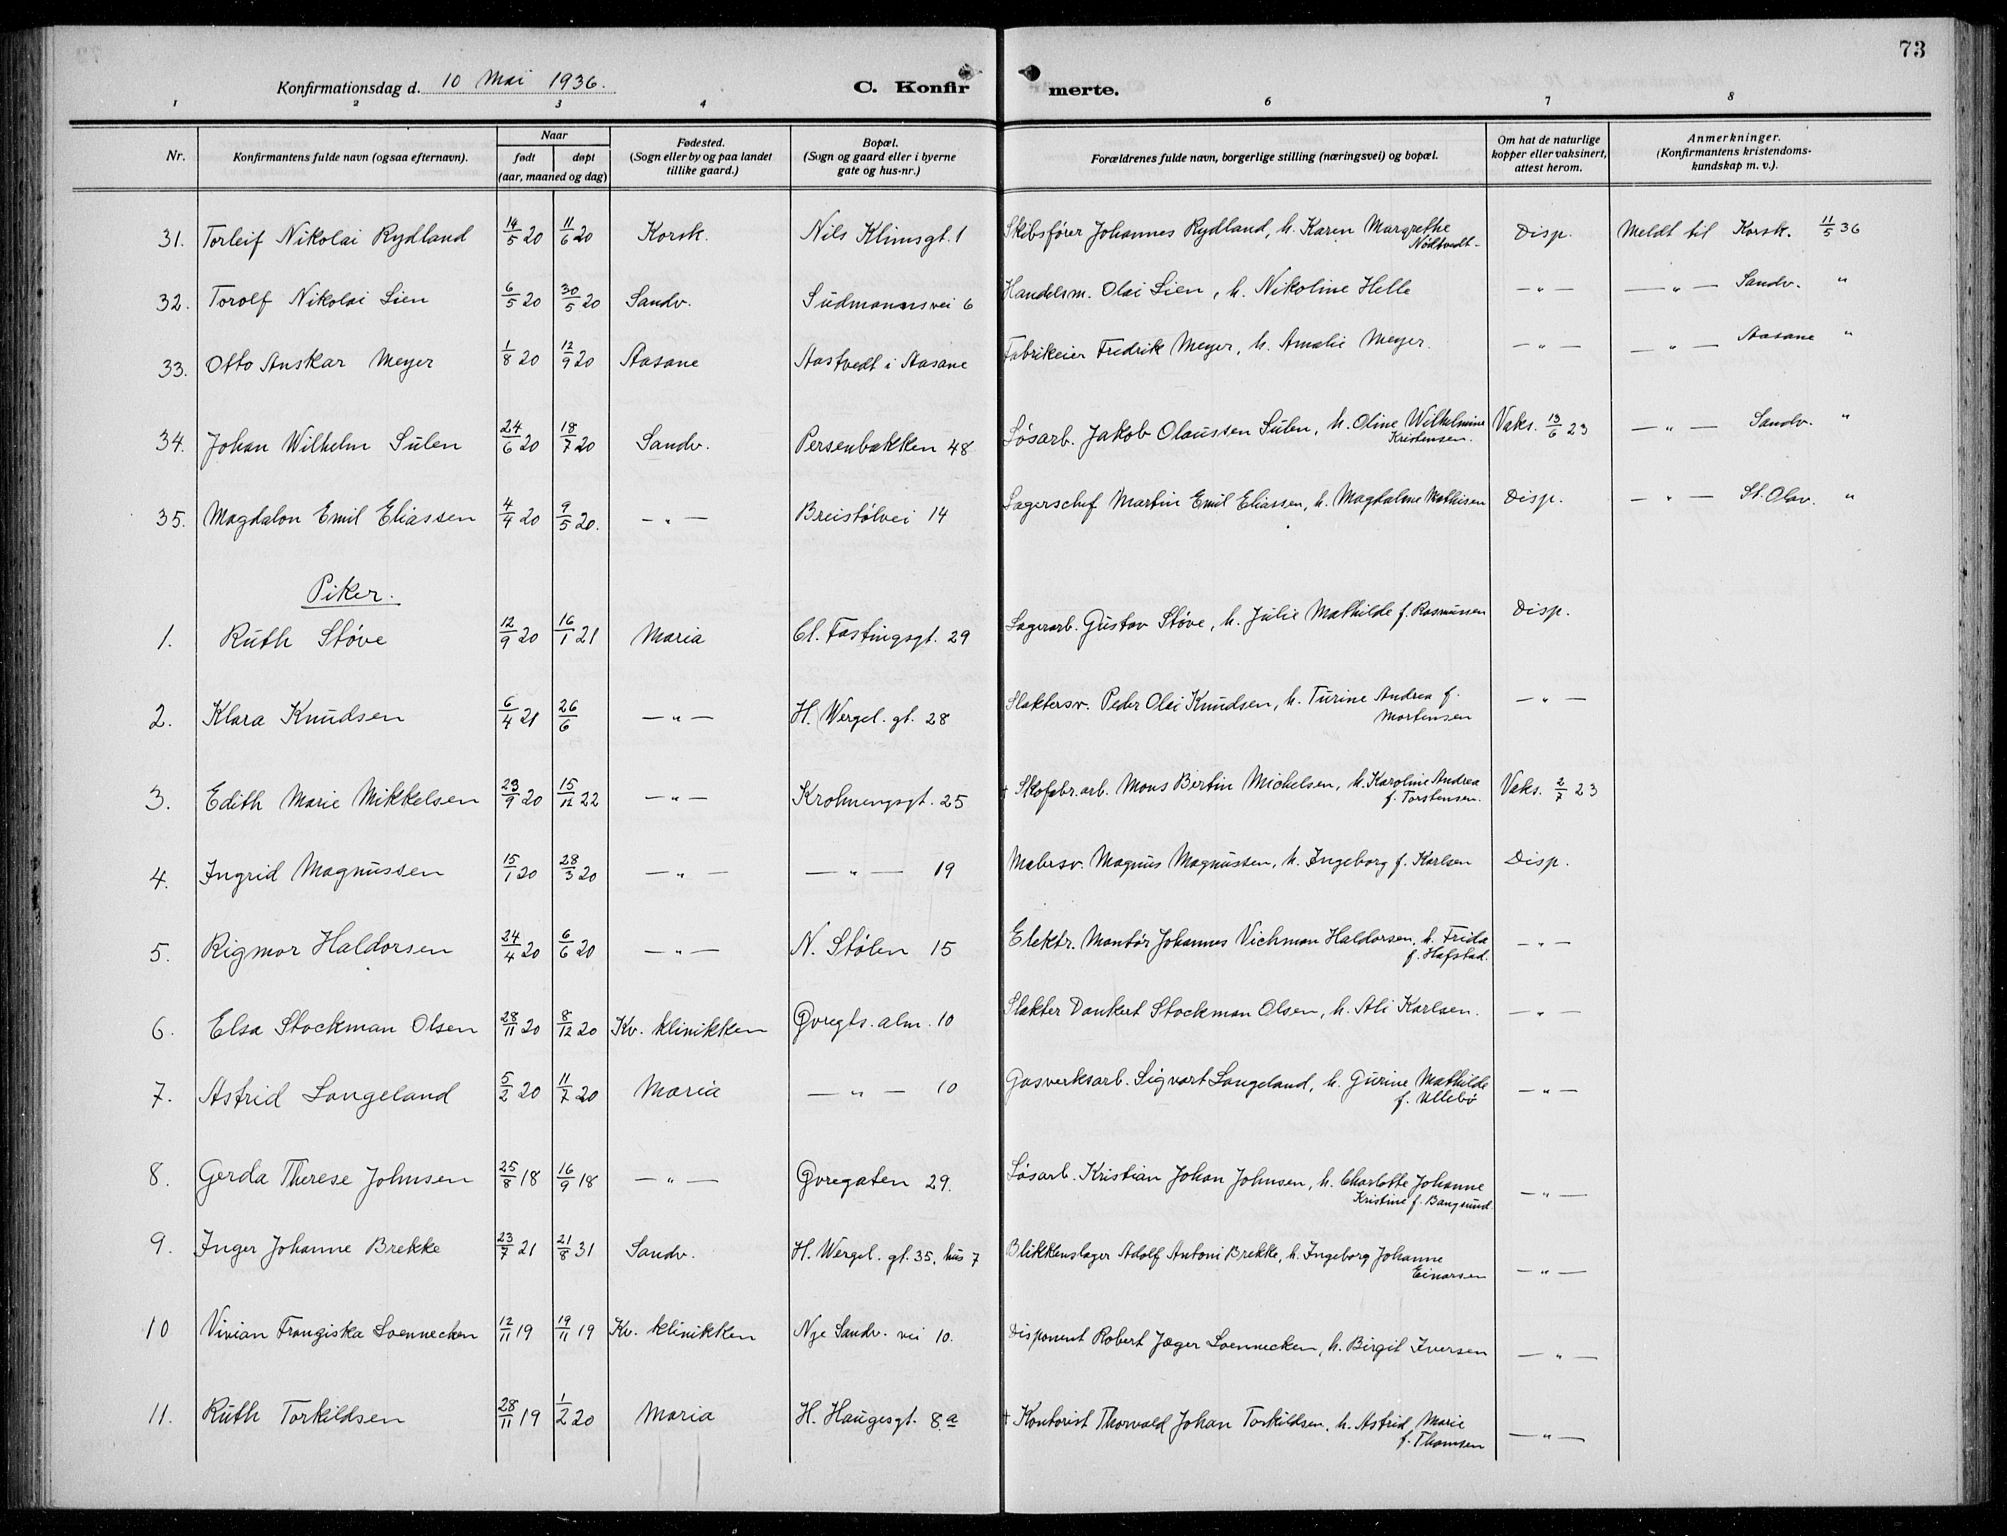 73
Konfirmationsdag d. 10 Mai 1936. C. Konfirmerte.
1 2 3 4 6 7 8
Nr. | Konfirmantens fulde navn (ogsaa efternavn). | Naar født døpt (aar, maaned og dag) | Fødested. (Sogn eller by og paa landet tillike gaard.) | Bopæl. (Sogn og gaard eller i byerne gate og hus-nr.) | Forældrenes fulde navn, borgerlige stilling (næringsvei) og bopæl. | Om hat de naturlige kopper eller vaksinert, attest herom. | Anmerkninger. (Konfirmantens kristendomskundskap m. v.).
31. Torleif Nikolai Rydland 14/5 20 11/6 20 Korsk. Nils Klimsgt. 1 Skibsfører Johannes Rydland, h. Karen Margrethe Nødtvedt- Disp. Meldt til Korsk. 11/5 36
32. Torolf Nikolai Lien 6/5 20 30/5 20 Sandv. Sudmannsvei 6 Handelsm. Olai Lien, h. Nikoline Helle —"— —"— Sandv. "
33. Otto Anskar Meyer 1/8 20 12/9 20 Aasane Aastvedt i Aasane Fabrikeier Fredrik Meyer, h. Amalie Meyer. —"— —"— Aasane "
34. Johan Wilhelm Sulen 24/6 20 18/7 20 Sandv. Persenbakken 48 Løsarb. Jakob Olaussen Sulen, h. Oline Wilhelmine Kristensen. Vaks. 13/6 23 —"— Sandv. "
35. Magdalon Emil Eliassen 4/4 20 9/5 20. —"— Breistølvei 14 Lagerschef Martin Emil Eliassen, h. Magdalene Mathisen Disp. —"— St. Olav. "
Piker.
1. Ruth Støve 12/9 20 16/1 21 Maria Cl. Fastingsgt. 29 Lagerarb. Gustav Støve, h. Julie Mathilde f. Rasmussen Disp.
2. Klara Knudsen 6/4 21 26/6 —"— H. Wergel. gt. 28 Slaktersv. Peder Olai Knudsen, h. Turine Andrea f. Mortensen —"—
3. Edith Marie Mikkelsen 29/9 20 15/12 22 —"— Krohnengsgt. 25 + Skofabr. arb. Mons Bertin Michelsen, h. Karoline Andrea f. Torstensen. Vaks. 2/7 23
4. Ingrid Magnussen 15/1 20 28/3 20 —"— —"— 19 Malersv. Magnus Magnussen, h. Ingeborg f. Karlsen Disp.
5. Rigmor Haldorsen 24/4 20 6/6 20 —"— N. Stølen 15 Elektr. Montør Johannes Vichman Haldorsen, h. Frida f. Hafstad. —"—
6. Elsa Stockman Olsen 28/11 20 8/12 20 Kv. klinikken Øvregts. alm. 10 Slakter Dankert Stockman Olsen, h. Ali Karlsen. —"—
7. Astrid Langeland 5/2 20 11/7 20 Maria —"— 10 Gasverksarb. Sigvart Langeland, h. Gurine Mathilde f. Ullebø —"—
8. Gerda Therese Johnsen 25/8 18 16/9 18 —"— Øvregaten 29. Løsarb. Kristian Johan Johnsen, h. Charlotte Johanne Kristine f. Bangsund. —"—
9. Inger Johanne Brekke 23/7 21 21/8 31 Sandv. H. Wergel. gt. 35, hus 7 Blikkenslager Adolf Antoni Brekke, h. Ingeborg Johanne Einarsen —"—
10 Vivian Frangiska Soennecken 12/11 19 19/11 19 Kv. klinikken Nye Sandv. vei 10. Disponent Robert Jæger Soennecken, h. Birgit Iversen —"—
11. Ruth Torkildsen 28/11 19 1/2 20 Maria H. Haugesgt. 8.a + Kontorist Thorvald Johan Torkildsen, h. Astrid Marie f. Thomsen —"—